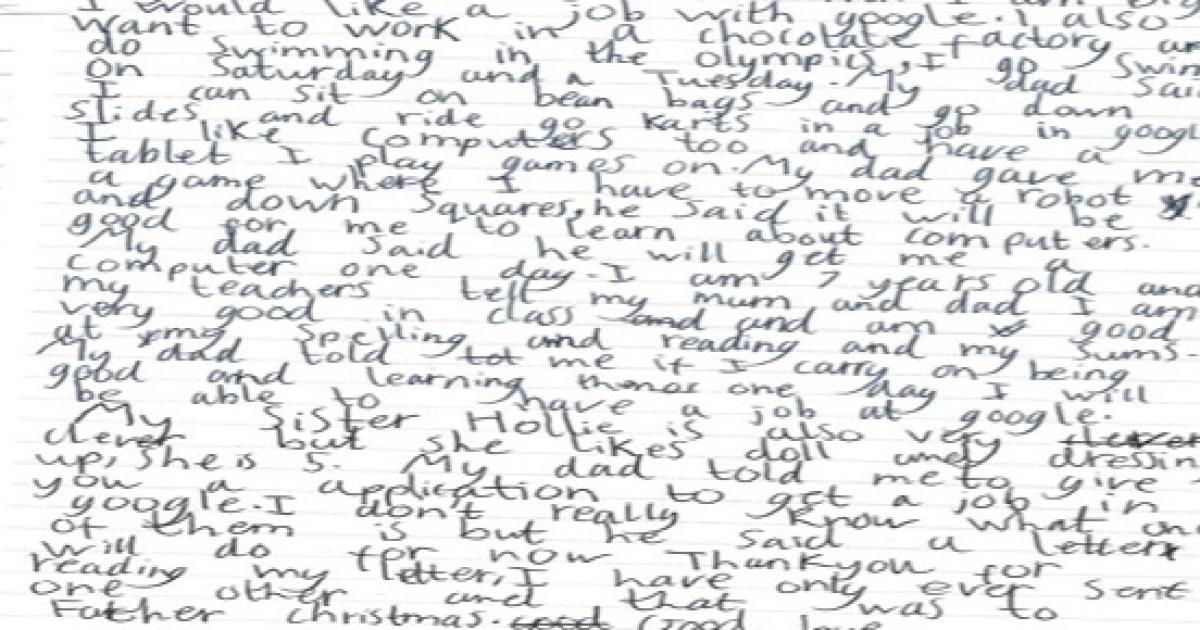 I would like a job with google. I also
want to work in a chocolate factory
do swimming in the olympics, I go Swim
on Saturday and a Tuesday. My dad Sai
I can sit on bean bags and go down
slides and ride go karts in a job in googl
I like computers too and have a
tablet I play games on. My dad gave me
a game where I have to move a robot
and down squares, he said it will be
good for me to learn about computers.
My dad said he will get me a
computer one day. I am 7 years old and
my teachers tell my mum and dad I am
very good in class and and am good
at my spelling and reading and my sums.
My dad told tot me if I carry on being
good and learning one day I will
be able to have a job at google.
My sister Hollie is also very clever
clever but she likes doll and dressin
up, she is 5. My dad told me to give
you a application to get a job in
google. I don't really know what on
of them is but he said a letter
will do for now Thankyou for
reading my letter, I have only ever sent
one other and that was to
Father christmas. good Good